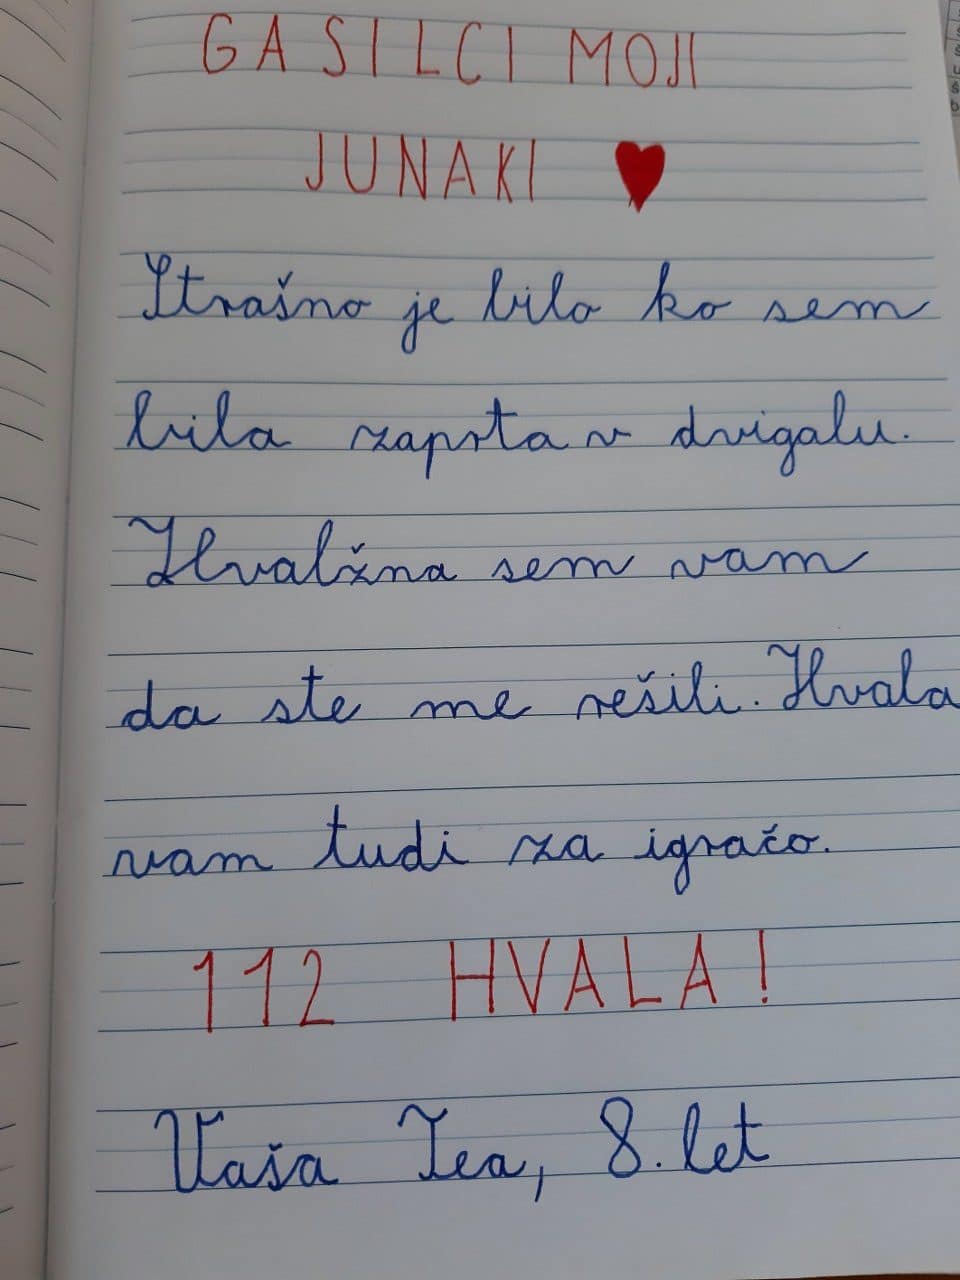 GASILCI MOJI
JUNAKI
Strašno je bilo ko sem
bila zaprta v dvigalu.
Hvaležna sem vam
da ste me rešili. Hvala
vam tudi za igračo.
112 HVALA!
Vaša Tea, 8. let